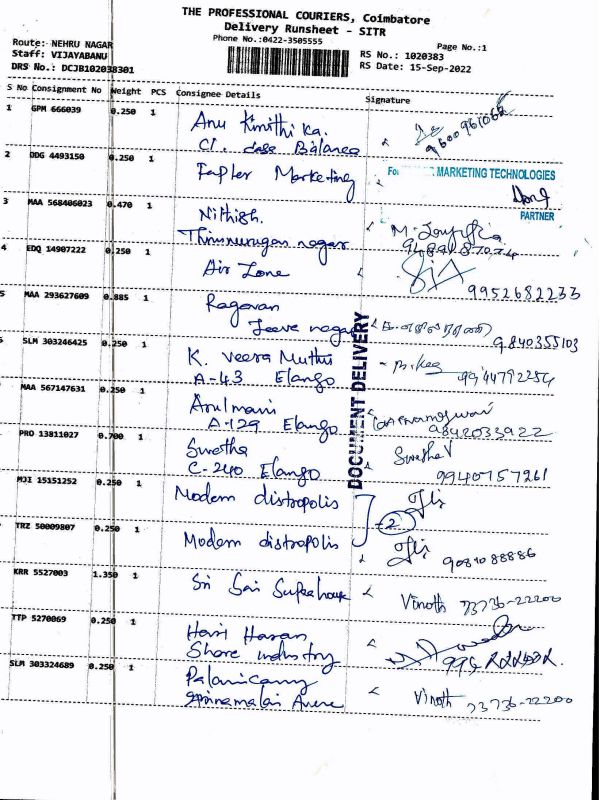 THE PROFESSIONAL COURIERS, Coimbatore
Delivery Runsheet - SITR
Phone No.:0422-3505555
Page No.:1
Route: NEHRU NAGAR
Staff: VIJAYABANU
DRS No.: DCJB102038301
RS No.: 1020383
RS Date: 15-Sep-2022
S No Consignment No Weight PCS Consignee Details Signature
1 GPM 666039 0.250 1
Anu
9600961062
2 DDG 4493150 0.250 1
Marketing
MARKETING TECHNOLOGIES
PARTNER
3 MAA 568406023 0.470 1
Nithish.
Thirumurugan nagar
4 EDQ 14907222 0.250 1
Air Zone
9952682233
5 MAA 293627609 0.885 1
Ragavan
Jeeve nagar
9840355103
SLM 303246425 0.250 1
K. Veera Muthu
A-43 Elango
9944792254
MAA 567147631 0.250 1
Arulmani
A-129 Elango
9842033922
DOCUMENT DELIVERY
PRO 13811027 0.700 1
Swetha
C-240 Elango
9940757261
MJI 15151252 0.250 1
Modern distropolis
2
TRZ 50009807 0.250 1
Modern distropolis
9087088886
KRR 5527003 1.350 1
Sri Sai
Vinoth 73736-22200
TTP 5270069 0.250 1
Hari Haran
Shore industry
SLM 303324689 0.250 1
Vinoth 73736-22200